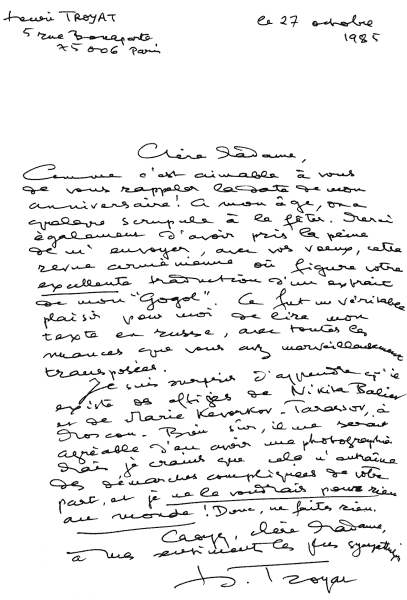 Henri TROYAT
5 rue Bonaparte
75006 Paris
le 27 octobre
1985
Chère Madame,
Comme c'est aimable à vous
de vous rappeler la date de mon
anniversaire! A mon âge, on a
quelque scrupule à le fêter. Merci
également d'avoir pris la peine
de m'envoyer, avec vos vœux, cette
revue arménienne où figure votre
excellente traduction d'un extrait
de mon "Gogol". Ce fut un véritable
plaisir pour moi de lire mon
texte en russe, avec toutes les
nuances que vous avez merveilleusement
transposées.
Je suis surpris d'apprendre qu'il
existe des effigies de Nikita Balieff
et de Marie Kevorkov-Tarassov, à
Moscou. Bien sûr, il me serait
agréable d'en avoir une photographie
Mais je crains que cela n'entraîne
des démarches compliquées de votre
part, et je ne le voudrais pour rien
au monde! Donc, ne faites rien.
Croyez, chère Madame,
à mes sentiments les plus sympathiques
H. Troyat